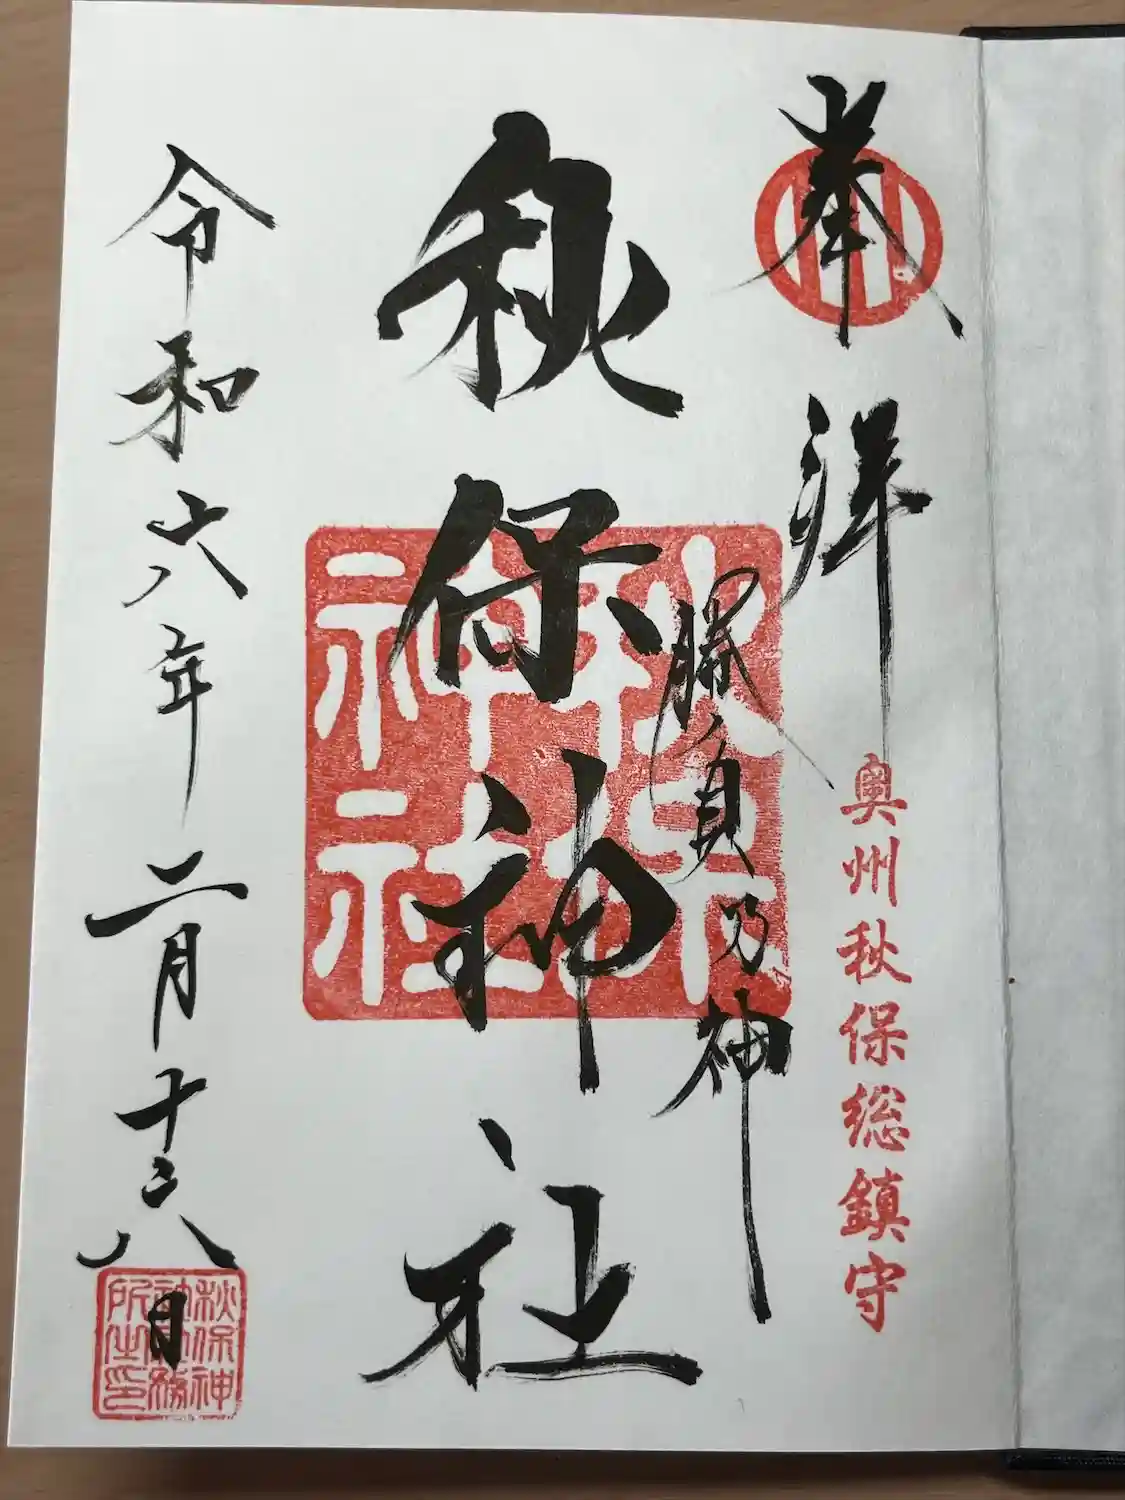 奉拝
奥州秋保総鎮守
勝負乃神
秋保神社
秋保神社
令和六年二月十六日
秋保神
社社務
所之印